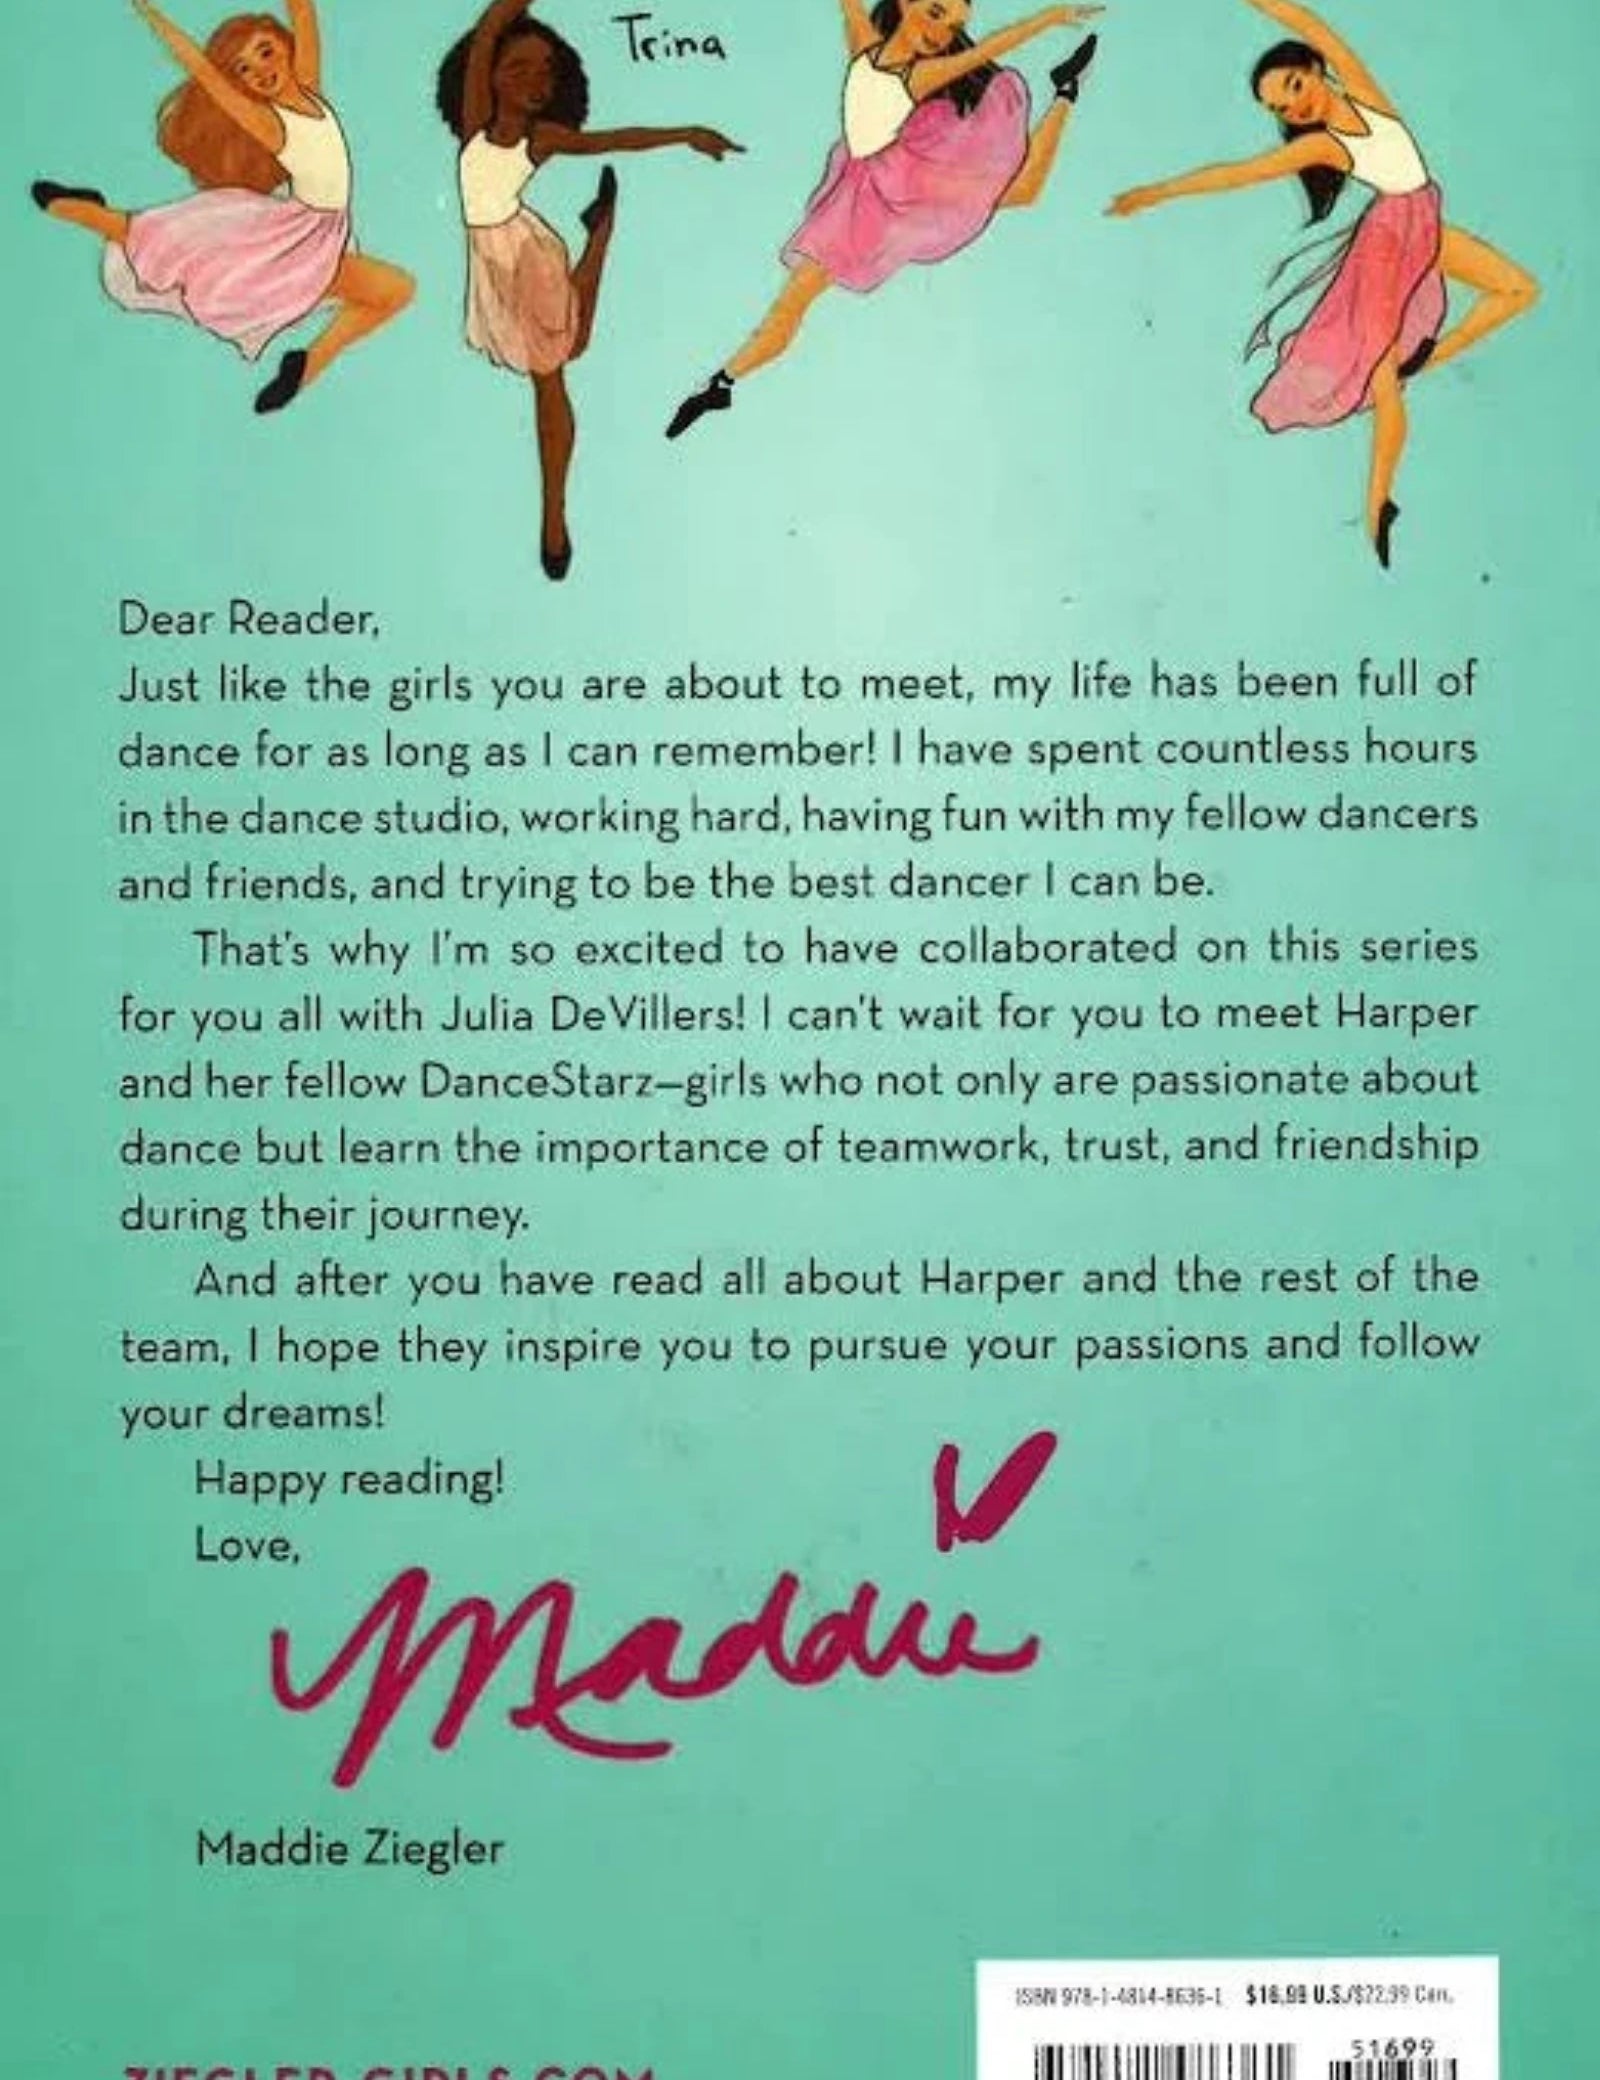 Trina
Dear Reader,
Just like the girls you are about to meet, my life has been full of
dance for as long as I can remember! I have spent countless hours
in the dance studio, working hard, having fun with my fellow dancers
and friends, and trying to be the best dancer I can be.
That's why I'm so excited to have collaborated on this series
for you all with Julia DeVillers! I can't wait for you to meet Harper
and her fellow DanceStarz—girls who not only are passionate about
dance but learn the importance of teamwork, trust, and friendship
during their journey.
And after you have read all about Harper and the rest of the
team, I hope they inspire you to pursue your passions and follow
your dreams!
Happy reading!
Love,
Maddie
Maddie Ziegler
ISBN 978-1-4814-8636-1 $16.99 U.S./$22.99 Can.
51699
ZIEGLER-GIRLS.COM